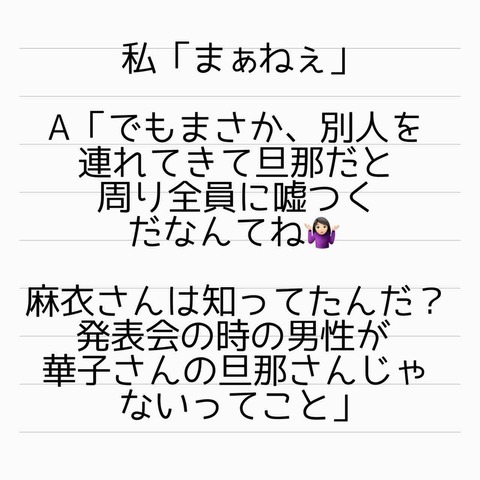 私「まぁねぇ」
A「でもまさか、別人を
連れてきて旦那だと
周り全員に嘘つく
だなんてね🤷🏻‍♀️
麻衣さんは知ってたんだ？
発表会の時の男性が
華子さんの旦那さんじゃ
ないってこと」